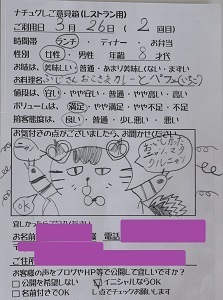 ナチュグルご意見箱(レストラン用)
ご利用日 3 月 26 日 ( 2 回目)
時間帯 ランチ・ ディナー ・ お弁当
性別 女性・男性 年齢 8 才代
お味は、美味しい・普通・あまり美味しくない・まずい
お料理名
値段は、安い・やや安い・普通・やや高い・高い
ボリュームは、満足・やや満足・やや不足・不足
接客態度は、良い・普通・少し悪い・悪い
お気付きの点がございましたら、お聞かせください。
OK
お名前 電話
ご住所
お客様の声をブログやHP等で公開して宜しいですか？
□公開を希望しない ☑イニシャルならOK
□名前付きでOK し点でチェックお願いします